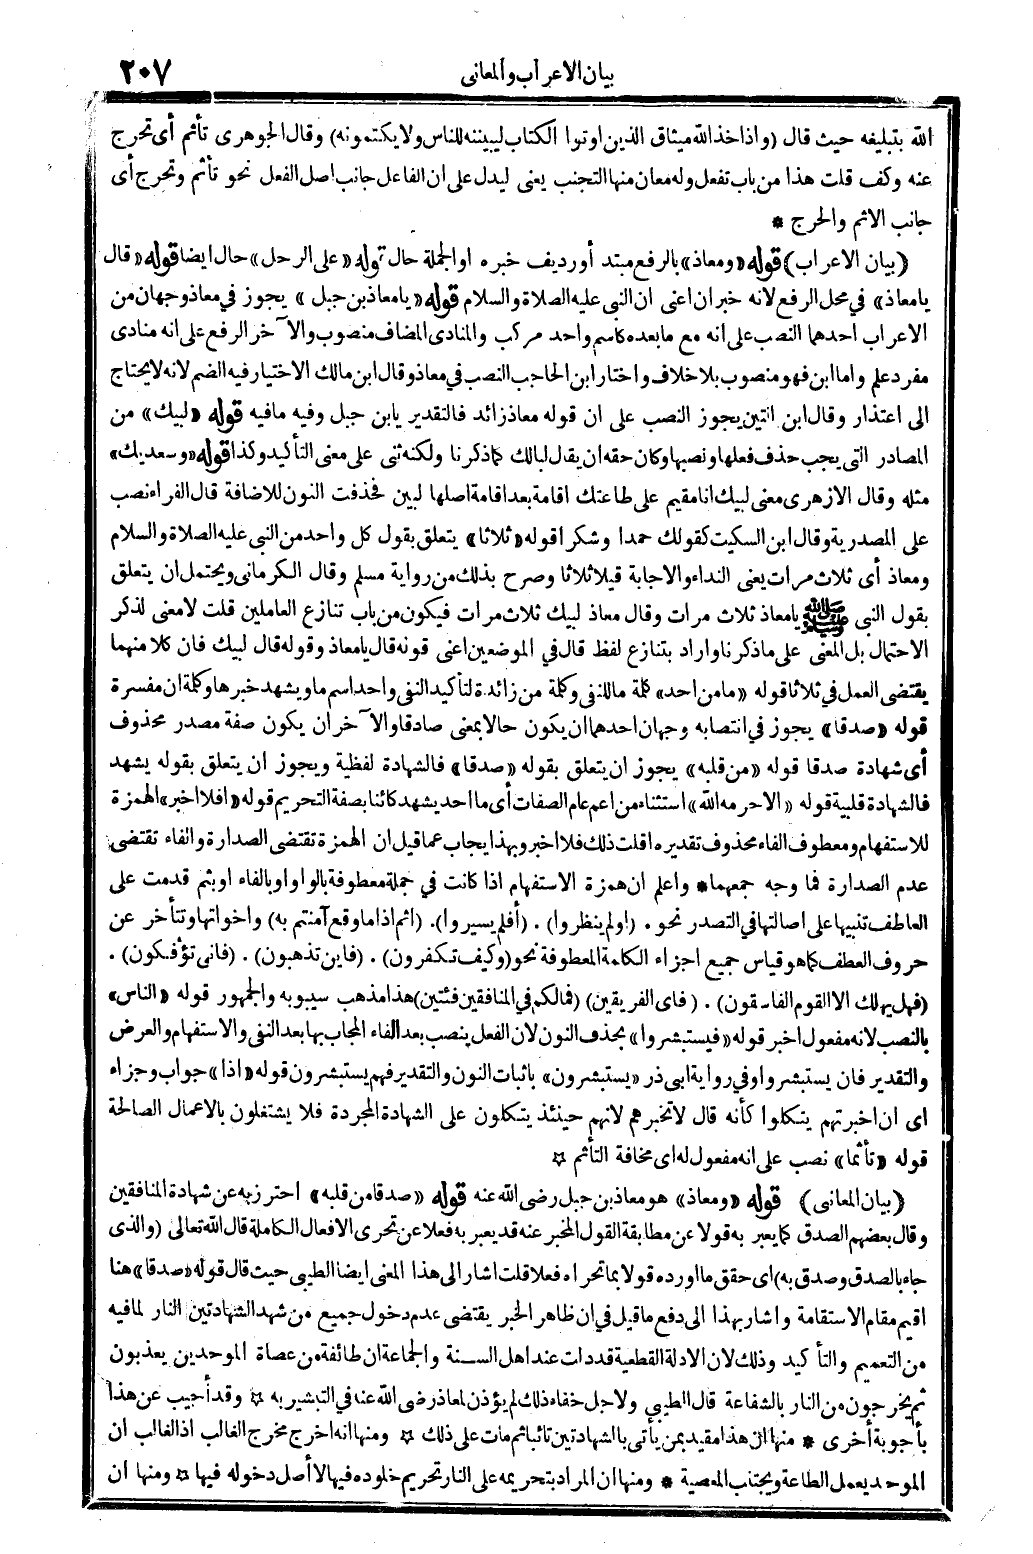 بيان الاعراب والمعانى
٢٠٧
الله بتبليغه حيث قال (واذ اخذ الله ميثاق الذين اوتوا الكتاب ليبيننه للناس ولا يكتمونه) وقال الجوهرى تأثم أى تحرج
عنه وكف قلت هذا من باب تفعل وله معان منها التجنب يعنى ليدل على ان الفاعل جانب اصل الفعل نحو تأثم وتحرج أى
جانب الاثم والحرج *
(بيان الاعراب) قوله «ومعاذ» بالرفع مبتدأ ورديف خبره او الجملة حال قوله «على الرحل» حال ايضا قوله «قال
يا معاذ» في محل الرفع لانه خبر ان اعنى ان النبى عليه الصلاة والسلام قوله «يا معاذ بن جبل» يجوز في معاذ وجهان من
الاعراب احدهما النصب على انه مع ما بعده كاسم واحد مركب والمنادى المضاف منصوب والآخر الرفع على انه منادى
مفرد علم واما ابن فهو منصوب بلا خلاف واختار ابن الحاجب النصب في معاذ وقال ابن مالك الاختيار فيه الضم لانه لا يحتاج
الى اعتذار وقال ابن التين يجوز النصب على ان قوله معاذ زائد فالتقدير يا بن جبل وفيه ما فيه قوله «لبيك» من
المصادر التى يجب حذف فعلها ونصبها وكان حقه ان يقال لبالك كما ذكرنا ولكنه ثنى على معنى التأكيد وكذا قوله «وسعديك»
مثله وقال الازهرى معنى لبيك انا مقيم على طاعتك اقامة بعد اقامة اصلها لبين فحذفت النون للاضافة قال الفراء نصب
على المصدرية وقال ابن السكيت كقولك حمدا وشكرا قوله «ثلاثا» يتعلق بقول كل واحد من النبى عليه الصلاة والسلام
ومعاذ أى ثلاث مرات يعنى النداء والاجابة قيلا ثلاثا وصرح بذلك من رواية مسلم وقال الكرمانى ويحتمل ان يتعلق
بقول النبى ﷺ يا معاذ ثلاث مرات وقال معاذ لبيك ثلاث مرات فيكون من باب تنازع العاملين قلت لا معنى لذكر
الاحتمال بل المعنى على ما ذكرنا واراد بتنازع لفظ قال في الموضعين اعنى قوله قال يا معاذ وقوله قال لبيك فان كلا منهما
يقتضى العمل في ثلاثا قوله «ما من احد» كلمة ما للنفى وكلمة من زائدة لتأكيد النفى واحد اسم ما ويشهد خبرها وكلمة ان مفسرة
قوله «صدقا» يجوز في انتصابه وجهان احدهما ان يكون حالا بمعنى صادقا والآخر ان يكون صفة مصدر محذوف
أى شهادة صدقا قوله «من قلبه» يجوز ان يتعلق بقوله «صدقا» فالشهادة لفظية ويجوز ان يتعلق بقوله يشهد
فالشهادة قلبية قوله «الا حرمه الله» استثناء من اعم عام الصفات أى ما احد يشهد كائنا بصفة التحريم قوله «افلا اخبر» الهمزة
للاستفهام ومعطوف الفاء محذوف تقديره اقلت ذلك فلا اخبر وبهذا يجاب عما قيل ان الهمزة تقتضى الصدارة والفاء تقتضى
عدم الصدارة فما وجه جمعهما * واعلم ان همزة الاستفهام اذا كانت في جملة معطوفة بالواو او بالفاء او بثم قدمت على
العاطف تنبيها على اصالتها في التصدر نحو . (اولم ينظروا) . (أفلم يسيروا). (اثم اذا ما وقع آمنتم به) واخواتها وتتأخر عن
حروف العطف كما هو قياس جميع اجزاء الكلمة المعطوفة نحو (وكيف تكفرون) . (فاين تذهبون) . (فانى تؤفكون) .
(فهل يهلك الا القوم الفاسقون) . (فاى الفريقين) (فما لكم في المنافقين فئتين) هذا مذهب سيبويه والجمهور قوله «الناس»
بالنصب لانه مفعول اخبر قوله «فيستبشروا» بحذف النون لان الفعل ينصب بعد الفاء المجاب بها بعد النفى والاستفهام والعرض
والتقدير فان يستبشروا وفي رواية ابى ذر «يستبشرون» باثبات النون والتقدير فهم يستبشرون قوله «اذا» جواب وجزاء
اى ان اخبرتهم يتكلوا كأنه قال لا تخبرهم لانهم حينئذ يتكلون على الشهادة المجردة فلا يشتغلون بالاعمال الصالحة
قوله «تأثما» نصب على انه مفعول له اى مخافة التأثم ☆
(بيان المعانى) قوله «ومعاذ» هو معاذ بن جبل رضى الله عنه قوله «صدقا من قلبه» احترز به عن شهادة المنافقين
وقال بعضهم الصدق كما يعبر به قولا عن مطابقة القول المخبر عنه قد يعبر به فعلا عن تحرى الافعال الكاملة قال الله تعالى (والذى
جاء بالصدق وصدق به) اى حقق ما اورده قولا بما تحراه فعلا قلت اشار الى هذا المعنى ايضا الطيبى حيث قال قوله «صدقا» هنا
اقيم مقام الاستقامة واشار بهذا الى دفع ما قيل في ان ظاهر الخبر يقتضى عدم دخول جميع من شهد الشهادتين النار لما فيه
من التعميم والتأكيد وذلك لان الادلة القطعية قد دات عند اهل السنة والجماعة ان طائفة من عصاة الموحدين يعذبون
ثم يخرجون من النار بالشفاعة قال الطيبى ولاجل خفاء ذلك لم يؤذن لمعاذ رضى الله عنه في التبشير به ☆ وقد أجيب عن هذا
بأجوبة أخرى * منها ان هذا مقيد بمن يأتى بالشهادتين تائبا ثم مات على ذلك ☆ ومنها انه اخرج مخرج الغالب اذ الغالب ان
الموحد يعمل الطاعة ويجتاب المعصية * ومنها ان المراد بتحريمه على النار تحريم خلوده فيها لا أصل دخوله فيها ☆ ومنها ان